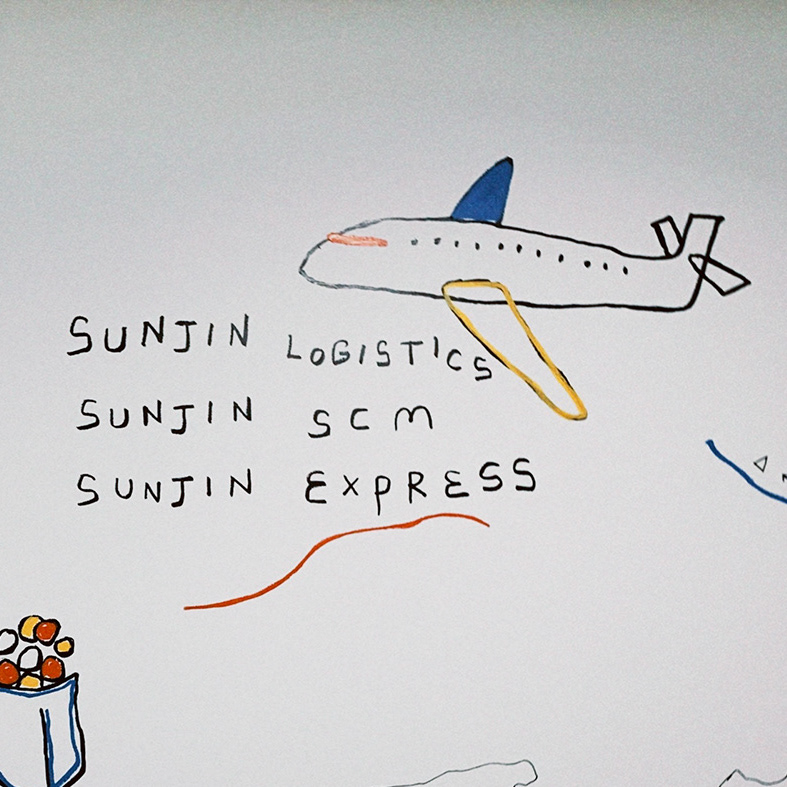 SUNJIN LOGISTICS
SUNJIN SCM
SUNJIN EXPRESS